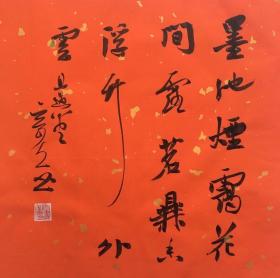 墨池烟霭花
间露茗鼎香
浮竹外
云